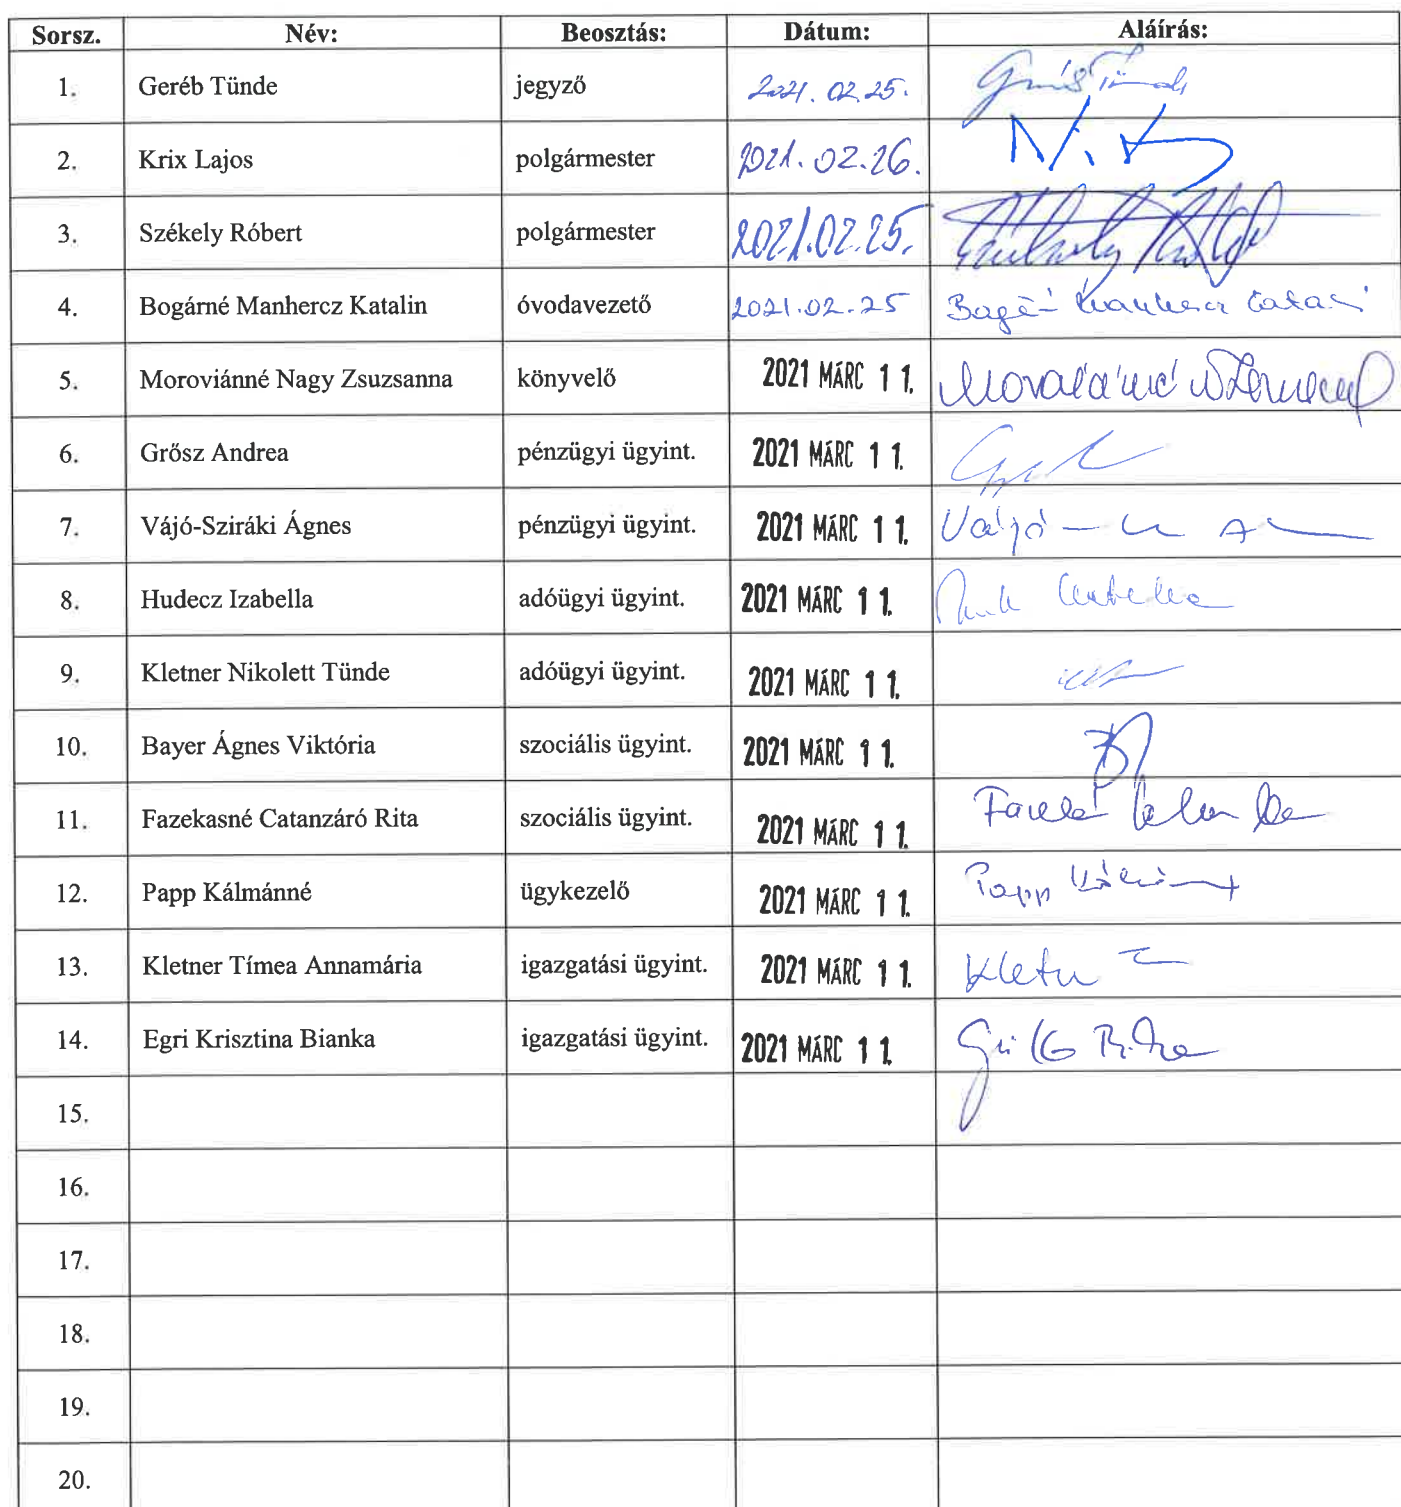 Sorsz. Név: Beosztás: Dátum: Aláírás:
1. Geréb Tünde jegyző 2021. 02. 25.
2. Krix Lajos polgármester 2021. 02. 26.
3. Székely Róbert polgármester 2021.02.25.
4. Bogárné Manhercz Katalin óvodavezető 2021.02.25
5. Moroviánné Nagy Zsuzsanna könyvelő 2021 MÁRC 1 1.
6. Grősz Andrea pénzügyi ügyint. 2021 MÁRC 1 1.
7. Vájó-Sziráki Ágnes pénzügyi ügyint. 2021 MÁRC 1 1. Vájó-
8. Hudecz Izabella adóügyi ügyint. 2021 MÁRC 1 1.
9. Kletner Nikolett Tünde adóügyi ügyint. 2021 MÁRC 1 1.
10. Bayer Ágnes Viktória szociális ügyint. 2021 MÁRC 1 1.
11. Fazekasné Catanzáró Rita szociális ügyint. 2021 MÁRC 1 1.
12. Papp Kálmánné ügykezelő 2021 MÁRC 1 1. Papp
13. Kletner Tímea Annamária igazgatási ügyint. 2021 MÁRC 1 1.
14. Egri Krisztina Bianka igazgatási ügyint. 2021 MÁRC 1 1.
15.
16.
17.
18.
19.
20.